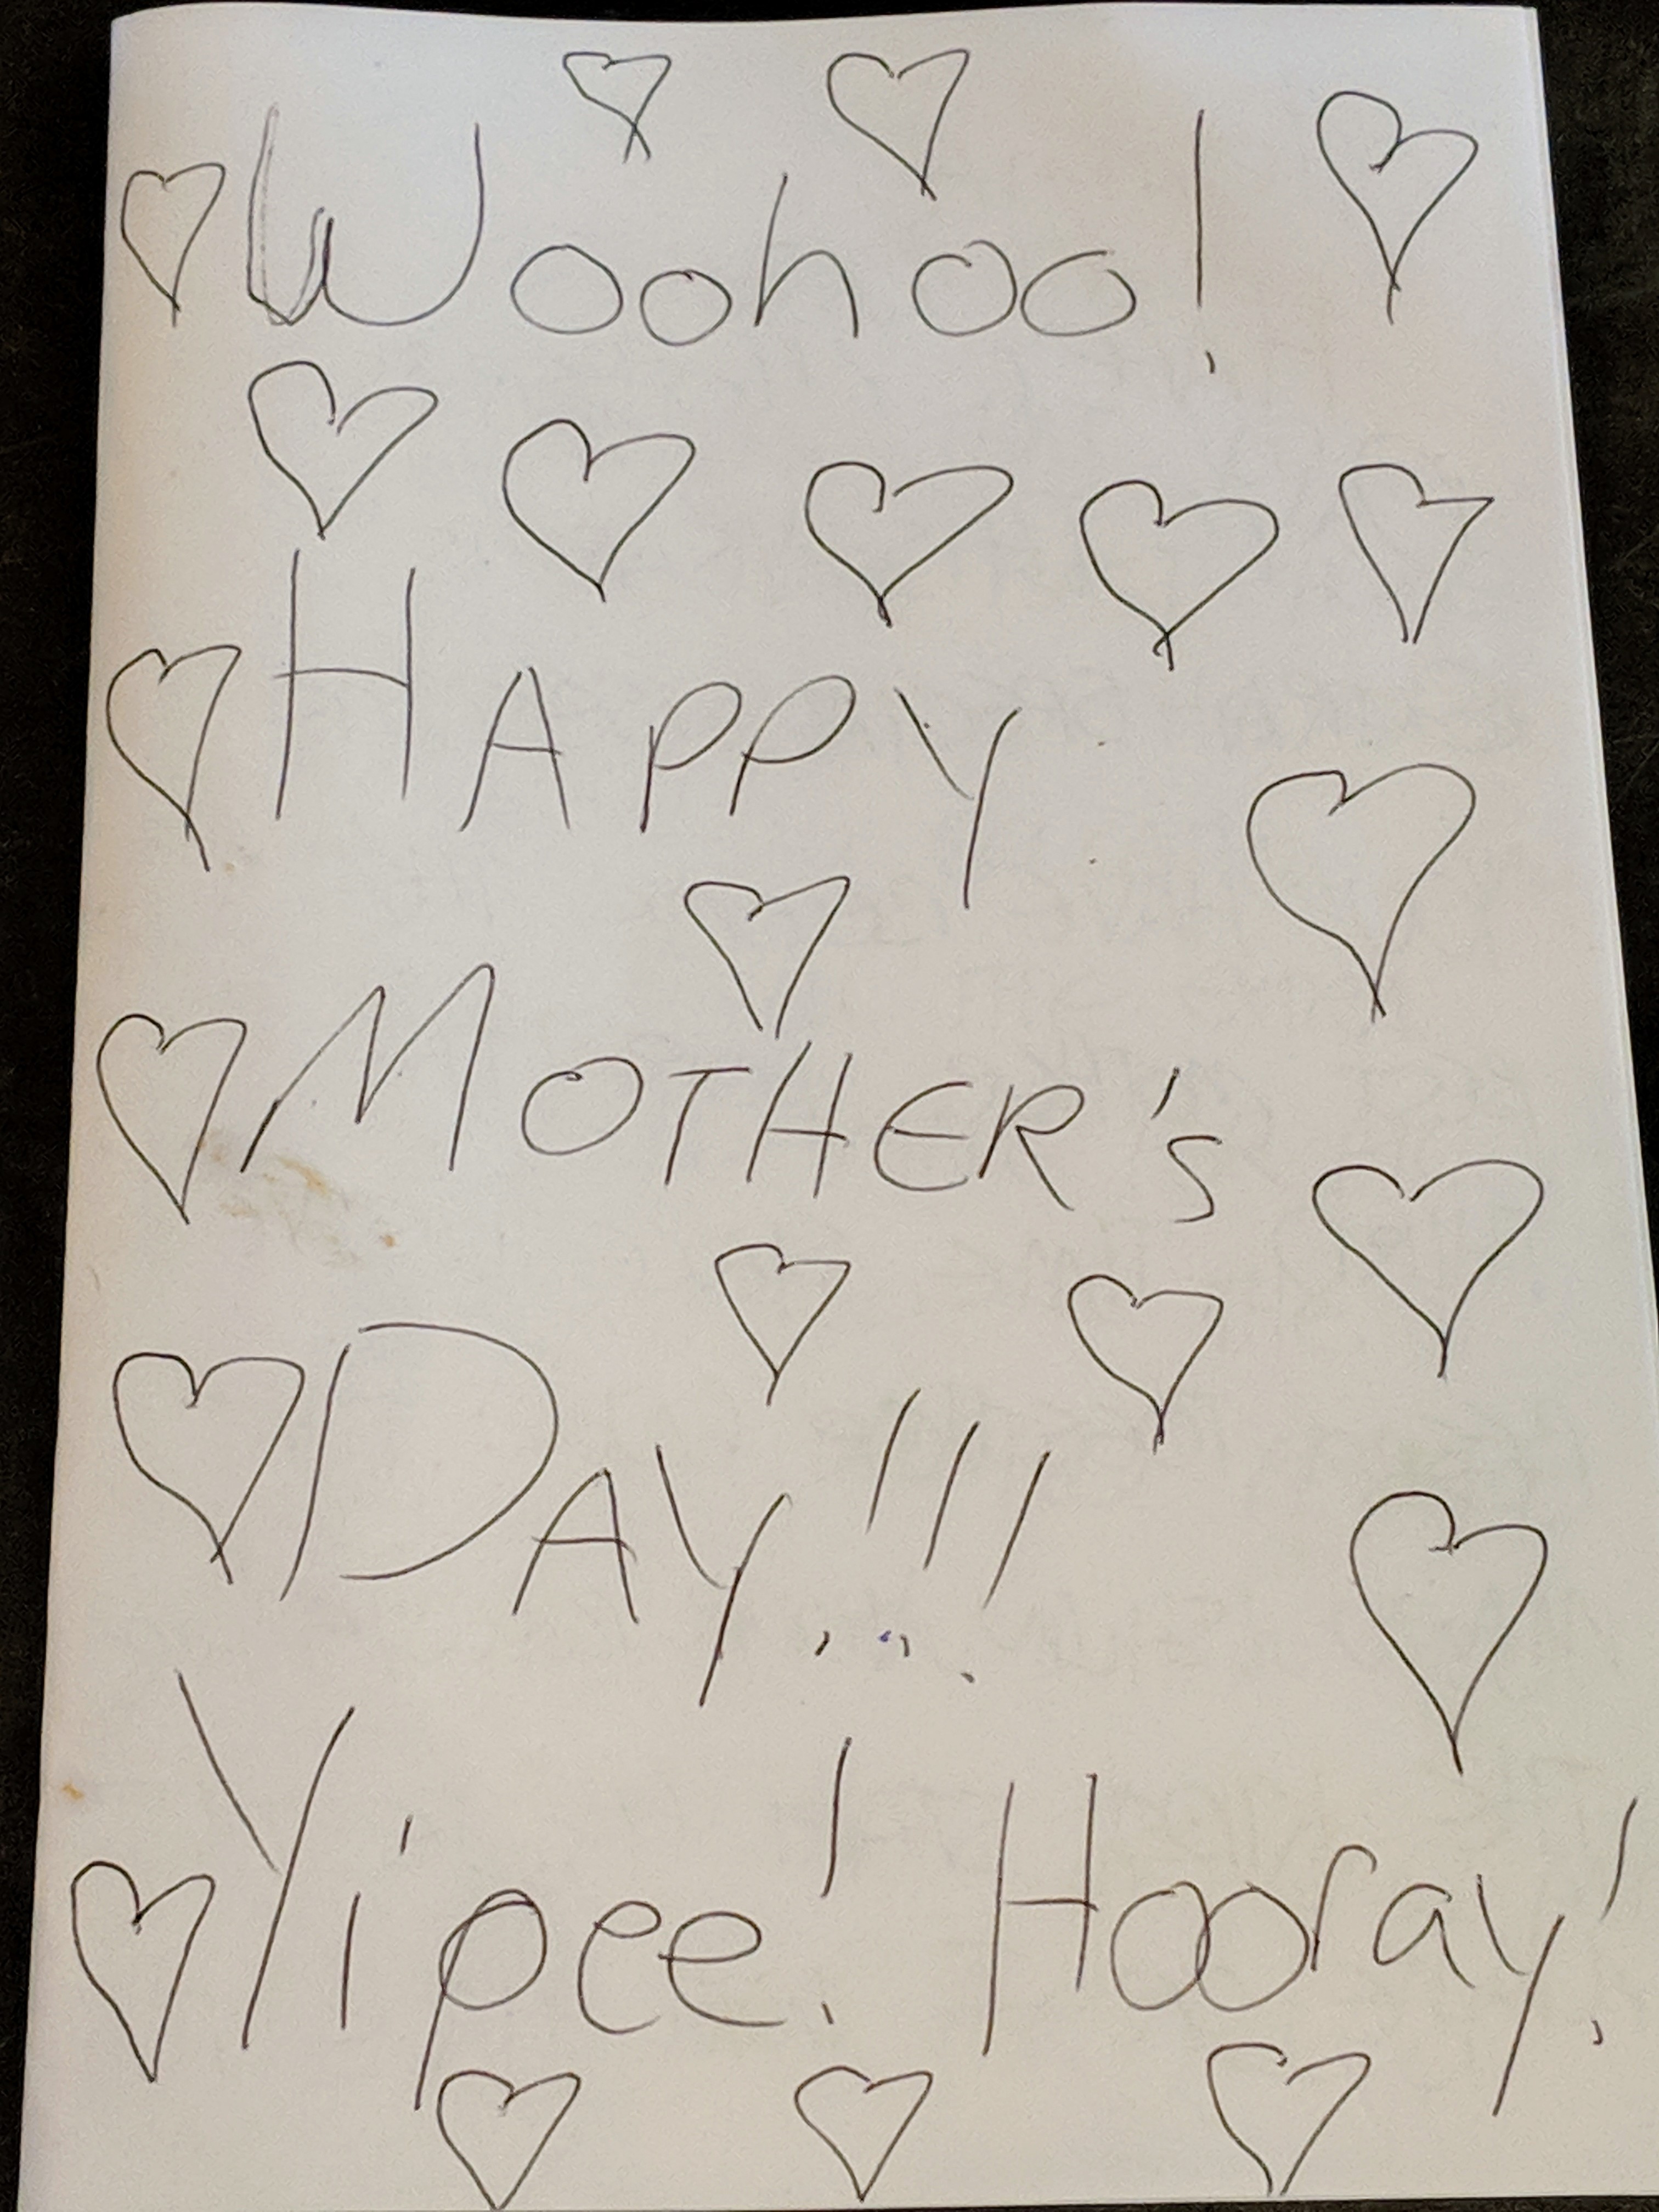 Woohoo!
HAPPY
MOTHER's
DAY!!!
Yipee! Hooray!